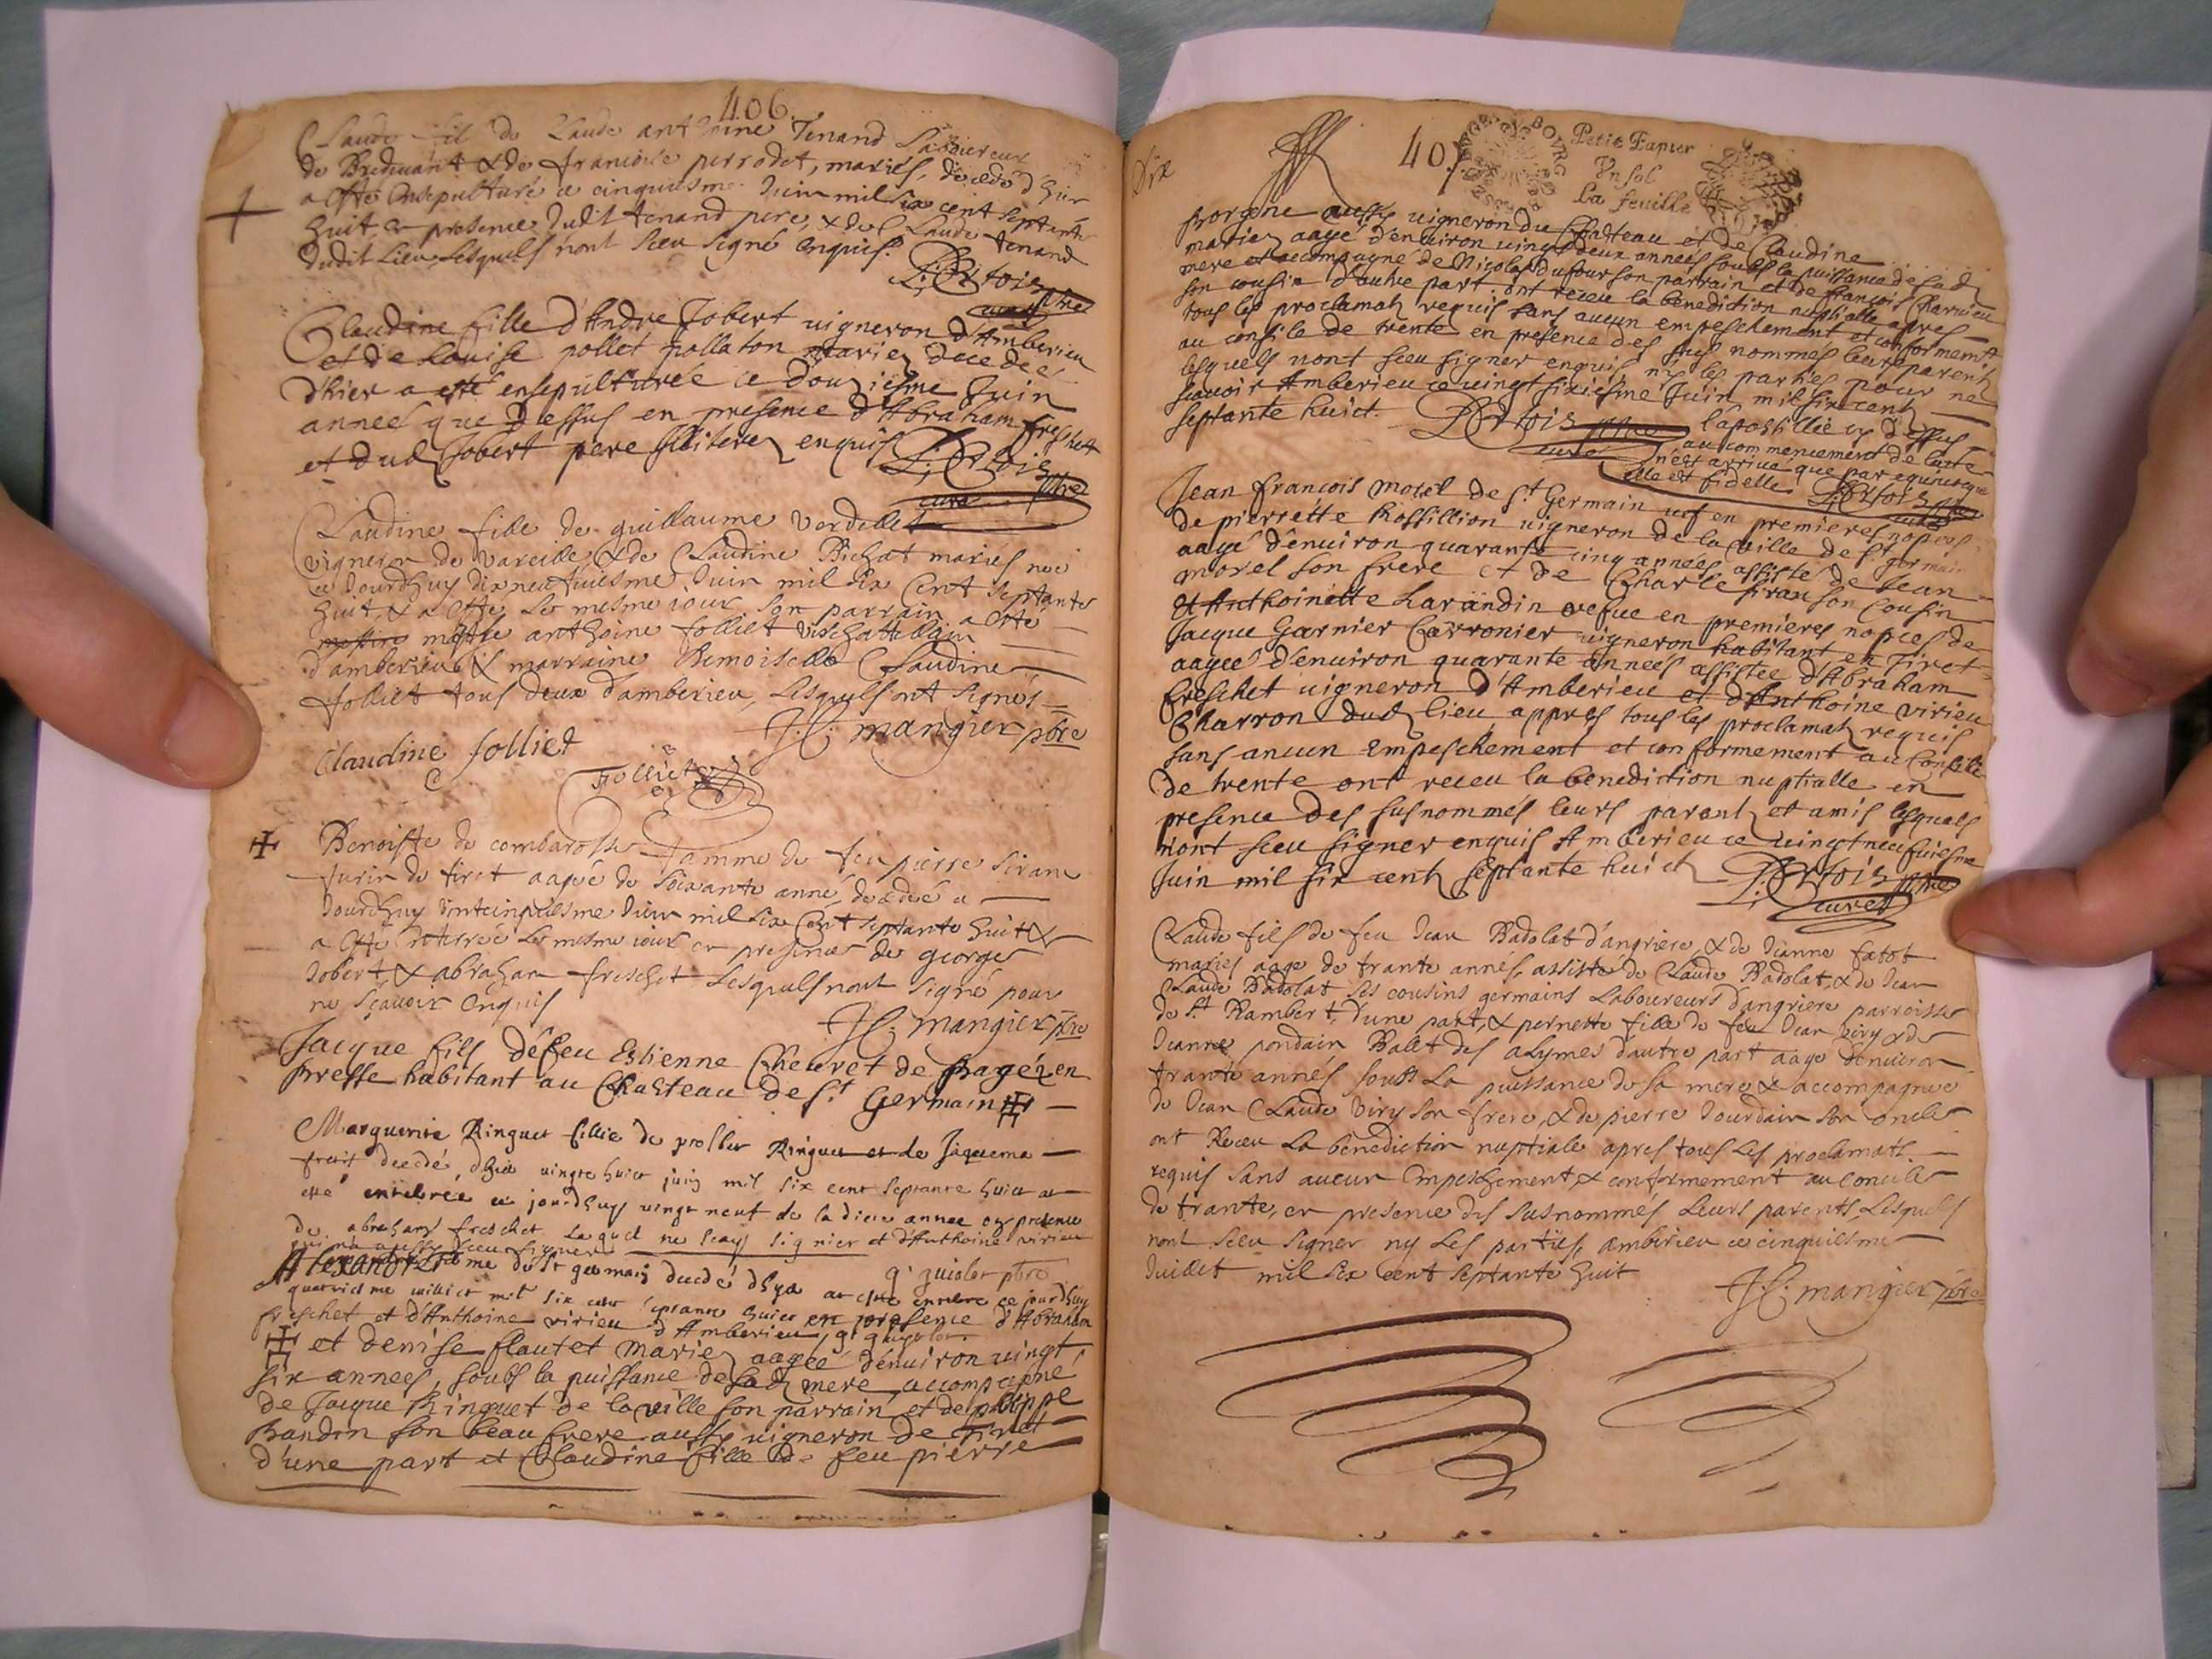 406
Claude fils de Claude anthoine Tenand Laboureur
de Breduant & de francoise perrodet, mariés, decedé d'hier
a esté ensepulturé ce cinquiesme Juin mil six cent septante
huit, en presence dudit tenand pere, & de Claude tenand
dudit Lieu, Lesquels nont sceu signé enquis.
P. Artois pbre
curé
Claudine fille d'Andre Jobert uigneron d'Amberieu
et de Louise pollet pollaton mariez decedée
d'hier a esté ensepulturée ce douziesme Juin
anneé que dessus en presence d'Abraham freschet
et dud Jobert pere illiterez enquis P. Artois pbre
curé
Claudine fille de guillaume Verdellet
vigneron de Vareille & de Claudine Bichat mariés née
ce Jourdhuy dixneufuiesme Juin mil six Cent septante
huit, & a esté le mesme iour son parrain a esté
messire maistre anthoine folliet Vischastellain
d'amberieu & marraine Demoiselle Claudine
folliet tous deux d'amberieu, Lesquels ont signés
J. C. mangier pbre
Claudine folliet
Folliet
Benoiste de combarosse famme de feu pierre Siran
furin de tiret aageé de soixante anné, decedeé ce
Jourdhuy Vintcinquiesme Juin mil six Cent septante huit &
a esté enterreé Le mesme iour en presence de george
Jobert & abraham freschet Lesquels nont signé pour
ne sçauoir enquis
J. C. mangier pbre
Jacque fils de feu Estienne Cheuret de
presse habitant au Chasteau de St Germain
Marguerite Ringuet fillie de Ringuet et de Jaquema
decedé dhier uingte huict juin mil six cent septante huict at
esté enterrée ce jourdhuy uingt neuf de la dicte annee en presence
de abraham freschet Lequel ne scay signier et d'Anthoine virieu
qui n'a aussy sceu signer
g. guiolot pbre
Alexandre de St germain decedé dhyer at esté enterre ce jourdhuy
quatriesme juilliet mil six cent septante huict en presence d'Abraham
freschet et d'Anthoine virieu d'Amberieu g. guiolot
et denise flautet mariez aageé d'enuiron uingt
six annees, soubs la puissance de sad mere accompagné
de Jacque Ringuet de la uille son parrain et de philippe
Bandin son beau frere aussy uigneron de tiret
d'une part et Claudine fille de feu pierre
Dix
407
Petit Papier
Un sol
La feuille
BOURG
Borgene aussy uigneron du Chasteau et de Claudine
mariez aageé d'enuiron uingt deux annees soubs la puissance de sad
mere et accompagné de Nicolas dufour son parrain et de francois Charuieu
son cousin d'autre part ont receu la benediction nuptialle apres
tous les proclamatz requis sans aucun empeschement et conformement
au consile de trente en presence des sus nommés leurs parentz
lesquels n'ont sceu signer enquis ny les parties pour ne
scauoir Amberieu ce uingt sixiesme Juin mil six centz
septante huict. P. Artois pbre
curé
l'apostille cy dessus
au commencement de l'acte
n'est arriué que par equiuoque
elle est fidelle P. Artois pbre
curé
Jean francois morel de St Germain uef en premieres nopces
de pierrette Rossillion uigneron de la uille de St germain
aagé d'enuiron quarante cinq années assisté de Jean
morel son frere et de Charle siran son Cousin
et Anthoinette Larandin vefue en premieres nopces de
Jacque Garnier Carronier uigneron habitant en Tiret
aageé d'enuiron quarante annees assistee d'Abraham
freschet uigneron d'Amberieu et d'Anthoine virieu
Charron dud lieu, appres tous les proclamatz requis
sans aucun empeschement et conformement au Consile
de trente ont receu la benediction nuptialle en
presence des susnommés leurs parentz et amis lesquels
n'ont sceu signer enquis Amberieu ce uingtneufuiesme
Juin mil six centz septante huict P. Artois pbre
curé
Claude fils de feu Jean Badolat d'angriere, & de Jeanne fatot
mariés aagé de trante annés, assisté de Claude Badolat, & de Jean
Claude Badolat ses cousins germains Laboureurs d'angriere parroisse
de St Rambert, d'une part, & pernette fille de feu Jean Viry & de
Jeanne pondain Balet des alymes d'autre part aagé d'enuiron
trante annés soubs La puissance de sa mere & accompagneé
de Jean Claude Viry son frere, & de pierre Jourdain son oncle
ont Receu La benediction nuptiale apres tous Les proclamats
requis sans aucun empeschement, & conformement au Concile
de trante, en presence des susnommés Leurs parents, Lesquels
nont sceu signer ny Les parties, amberieu ce cinquiesme
Juillet mil six cent septante huit
J. C. mangier pbre